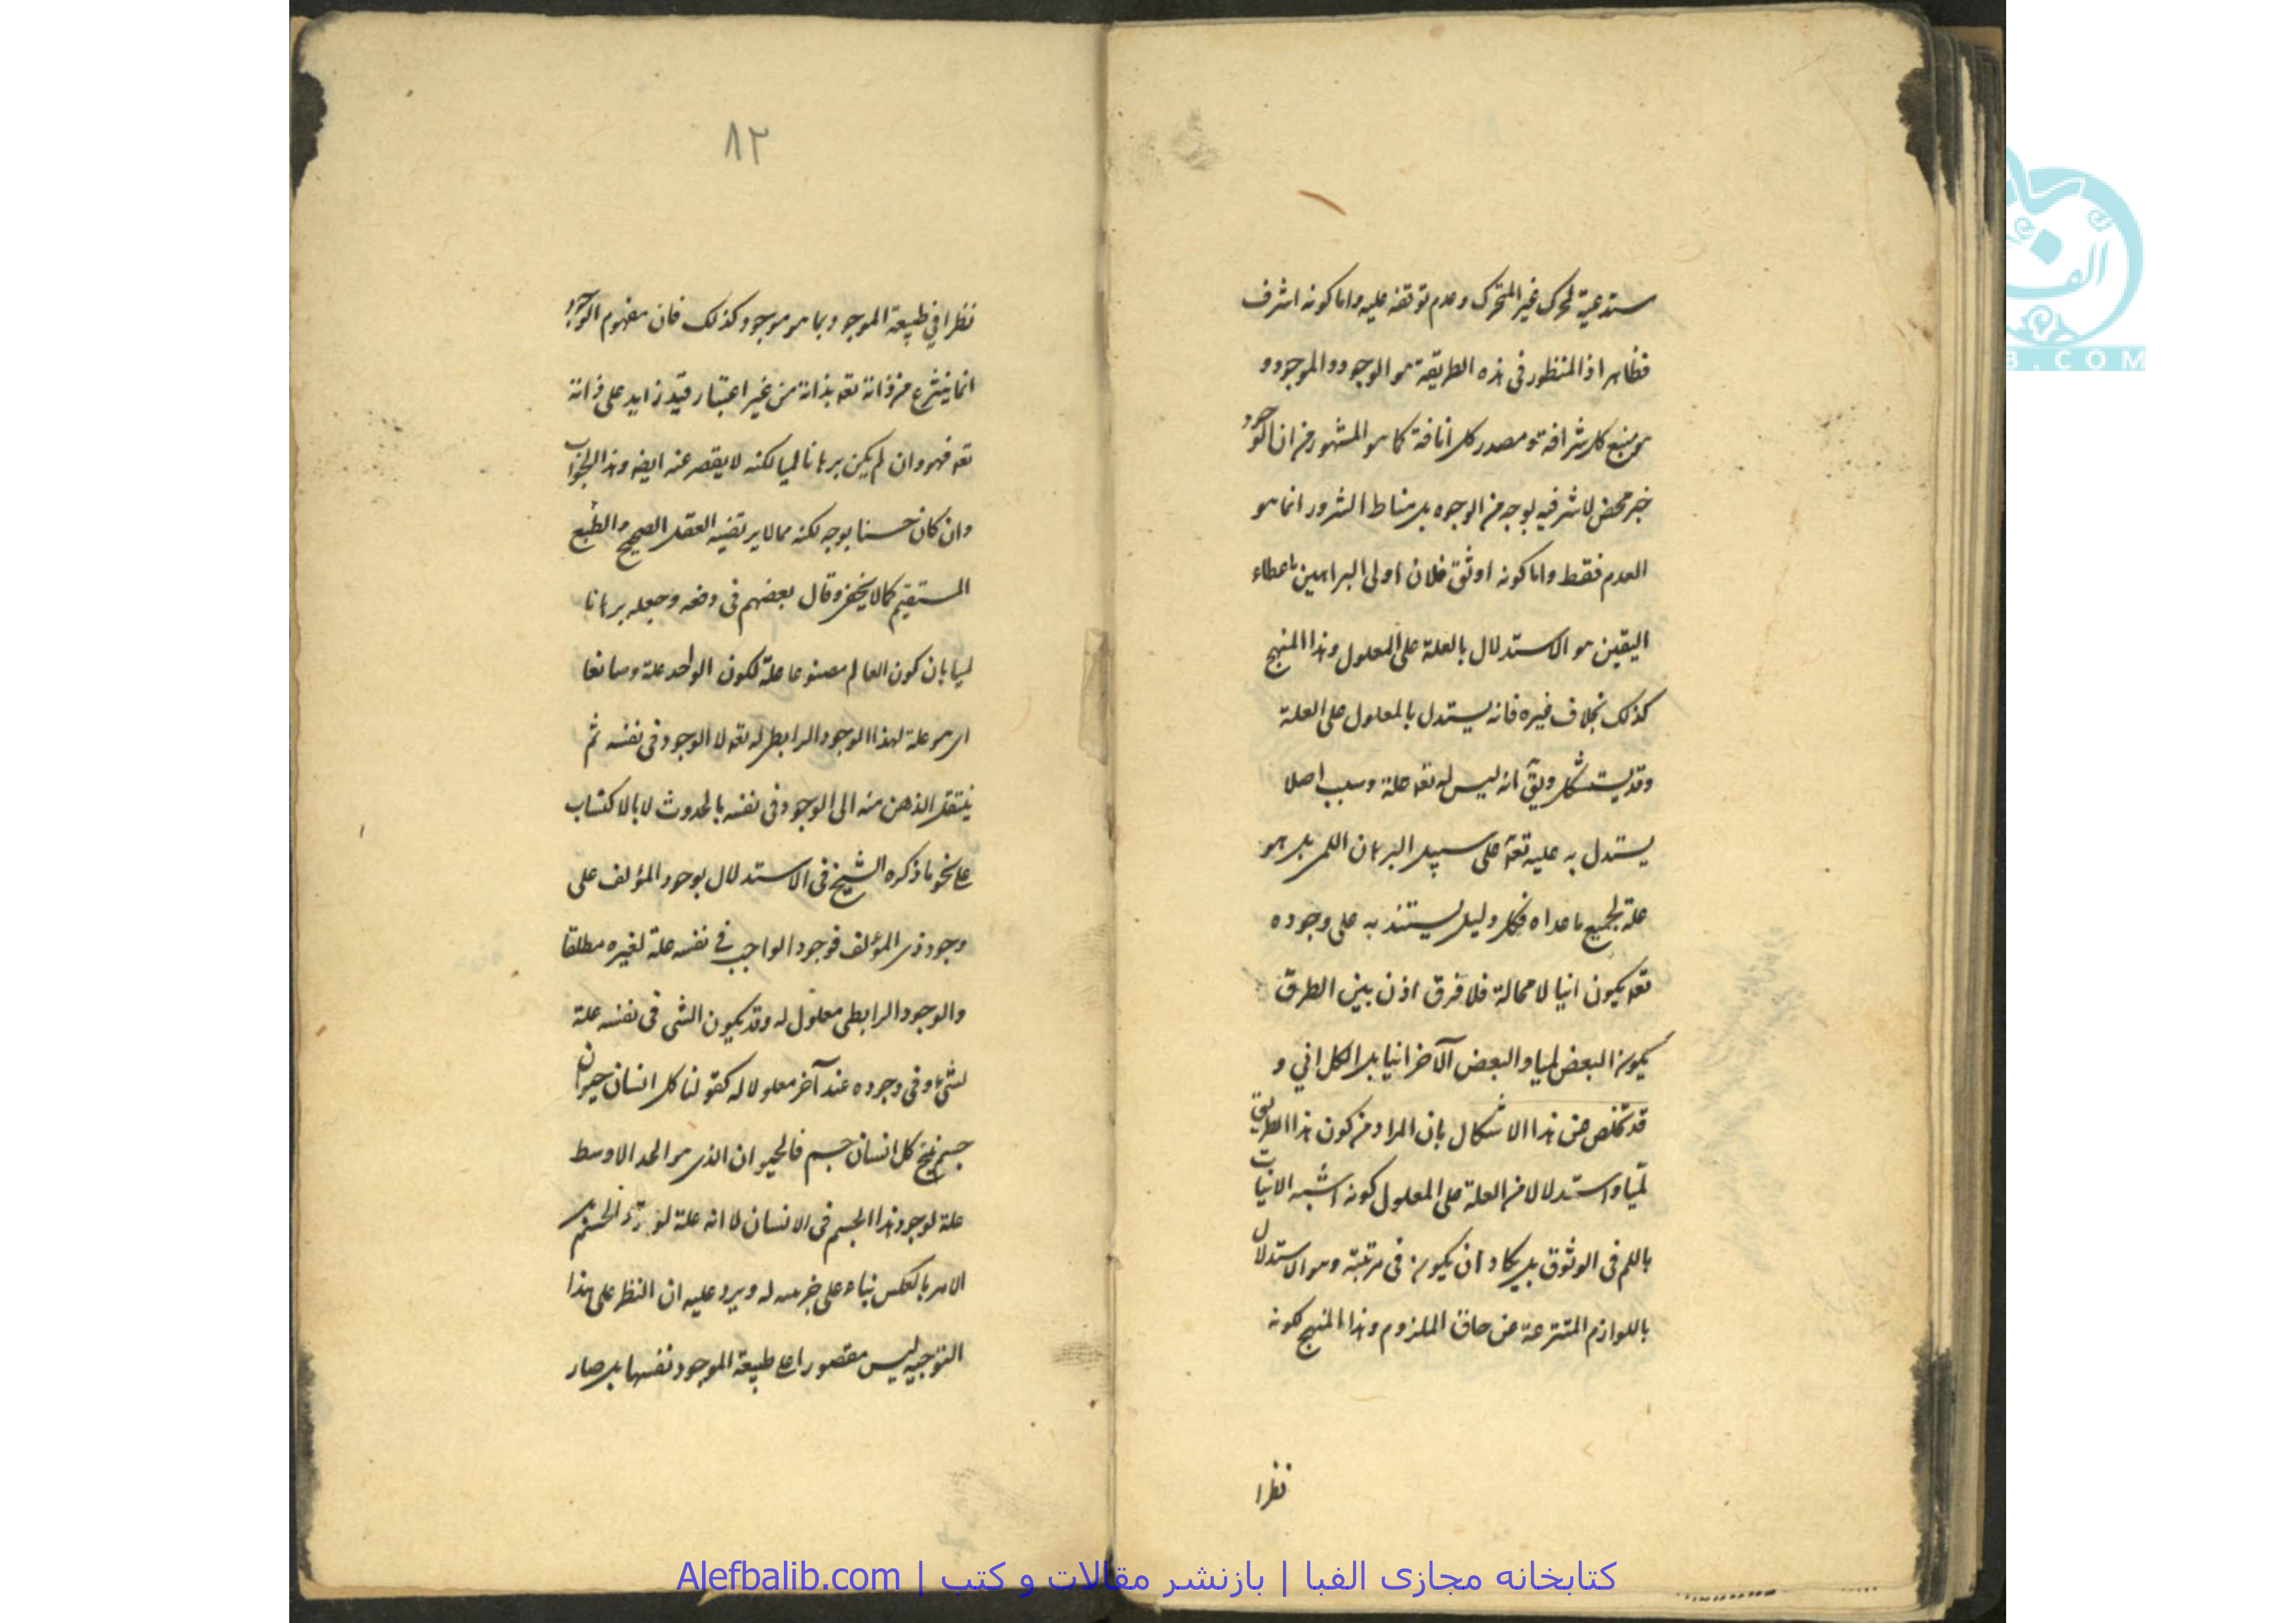 ستدعية لمحرك غير المتحرك وعدم توقفه عليه واما كونه اشرف
فظاهر اذ المنظور فى هذه الطريقة هو الوجود والموجود و
هو منبع كل شرافة ومصدر كل انافة كما هو المشهور من ان الوجود
خير محض لا شر فيه بوجه من الوجوه بل مناط الشرور انما هو
العدم فقط واما كونه اوثق فلان اولى البراهين باعطاء
اليقين هو الاستدلال بالعلة على المعلول وهذا المنهج
كذلك بخلاف غيره فانه يستدل بالمعلول على العلة
وقد يستشكل ويق انه ليس له تعه علة وسبب اصلا
يستدل به عليه تعه على سبيل البرهان اللمى بل هو
علة لجميع ما عداه فكل دليل يستند به على وجوده
تعه يكون انيا لا محالة فلا فرق اذن بين الطرق
يكون البعض لميا والبعض الآخر انيا بل الكل اني و
قد تخلص عن هذا الاشكال بان المراد من كون هذا الطريق
لميا واستدلالا من العلة على المعلول كونه اشبه الانيات
باللم فى الوثوق بل يكاد ان يكون فى مرتبته وهو الاستدلال
باللوازم المنتزعة عن حاق الملزوم وهذا المنهج لكونه
نظرا
٨٢
نظرا في طبيعة الموجود بما هو موجود كذلك فان مفهوم الوجود
انما ينتزع من ذاته تعه بذاته من غير اعتبار قيد زايد على ذاته
تعه فهو وان لم يكن برهانا لميا لكنه لا يقصر عنه ايضه وهذا الجواب
وان كان حسنا بوجه لكنه مما لا يرتضيه العقل الصحيح والطبع
المستقيم كما لا يخفى وقال بعضهم فى دفعه وجعله برهانا
لميا بان كون العالم مصنوعا علة لكون الواحد علة وصانعا
اى هو علة لهذا الوجود الرابطى له تعه لا الوجود فى نفسه ثم
ينتقل الذهن منه الى الوجود فى نفسه بالحدوث لا بالاكتساب
على نحو ما ذكره الشيخ فى الاستدلال بوجود المؤلف على
وجود ذى المؤلف فوجود الواجب في نفسه علة لغيره مطلقا
والوجود الرابطى معلول له وقد يكون الشى فى نفسه علة
لشى وفى وجوده عند آخر معلولا له كقولنا كل انسان حيوان
جسم ينتج كل انسان جسم فالحيوان الذى هو الحد الاوسط
علة لوجود هذا الجسم فى الانسان لا انه علة بل
الامر بالعكس بناء على له ويرد عليه ان النظر على هذا
التوجيه ليس مقصورا على طبيعة الموجود نفسها بل صار
کتابخانه مجازی الفبا | بازنشر مقالات و کتب | Alefbalib.com
الف
B.COM